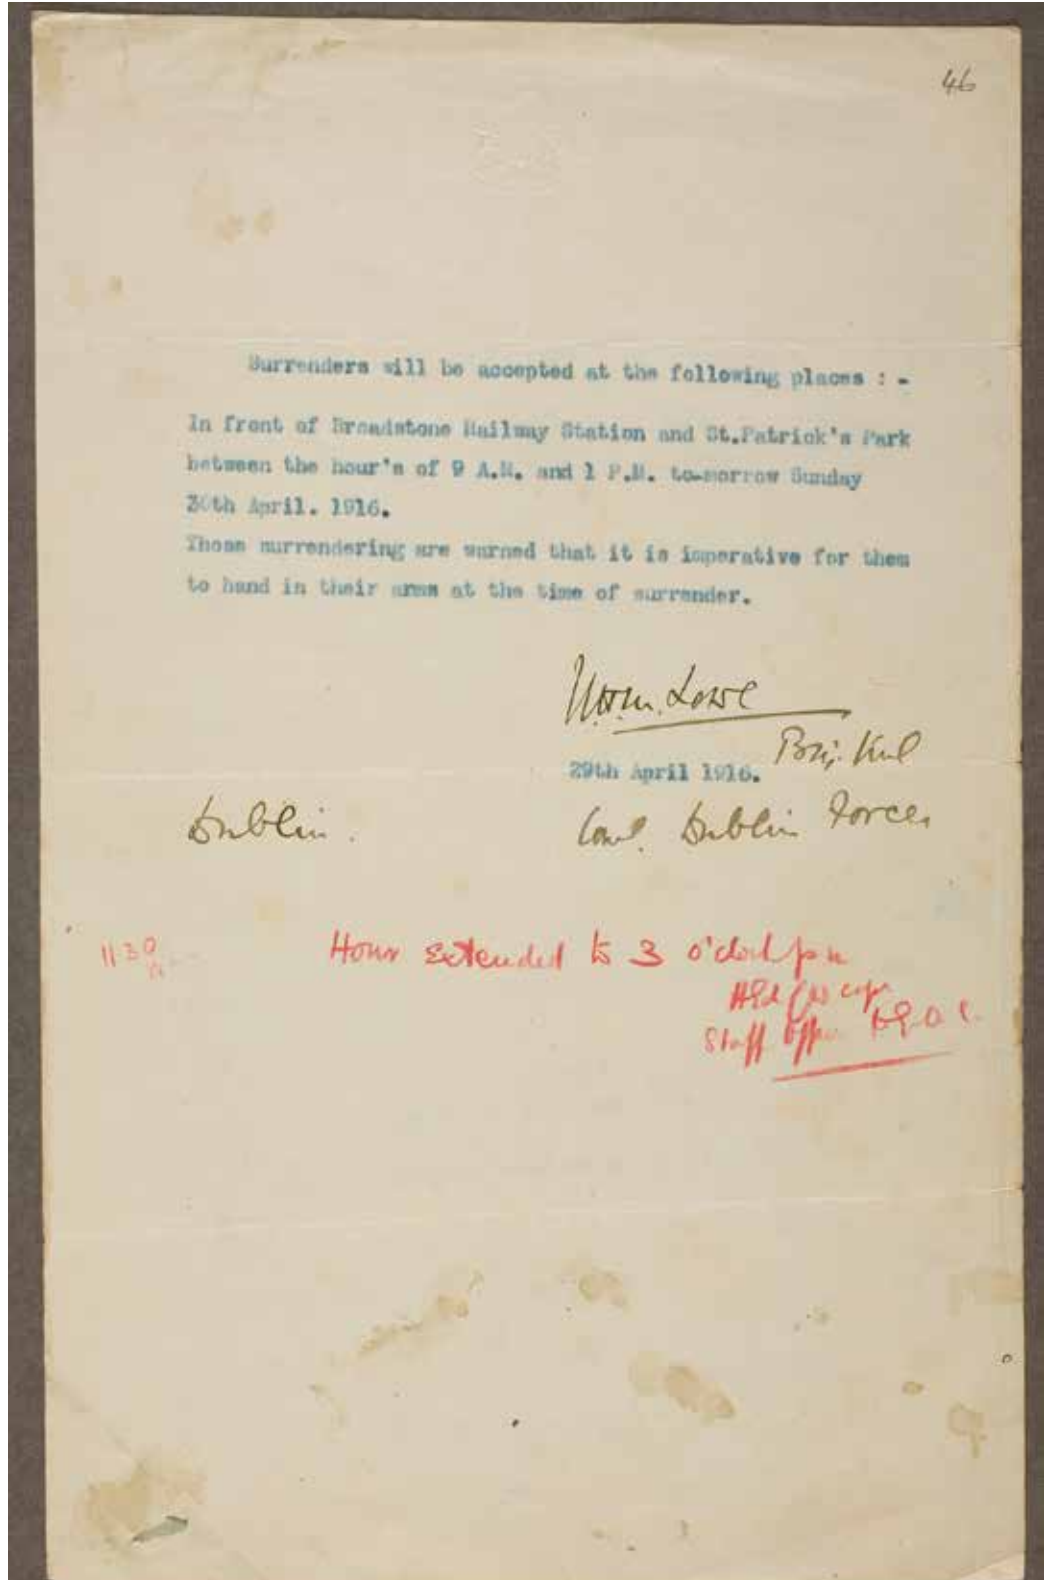 46
Surrenders will be accepted at the following places : -
In front of Broadstone Railway Station and St.Patrick's Park
between the hour's of 9 A.M. and 1 P.M. to-morrow Sunday
30th April. 1916.
Those surrendering are warned that it is imperative for them
to hand in their arms at the time of surrender.
W.H.M. Lowe
29th April 1916.
Dublin.
Dublin Forces
1130
Hour Extended to 3 o'clock pm
Staff